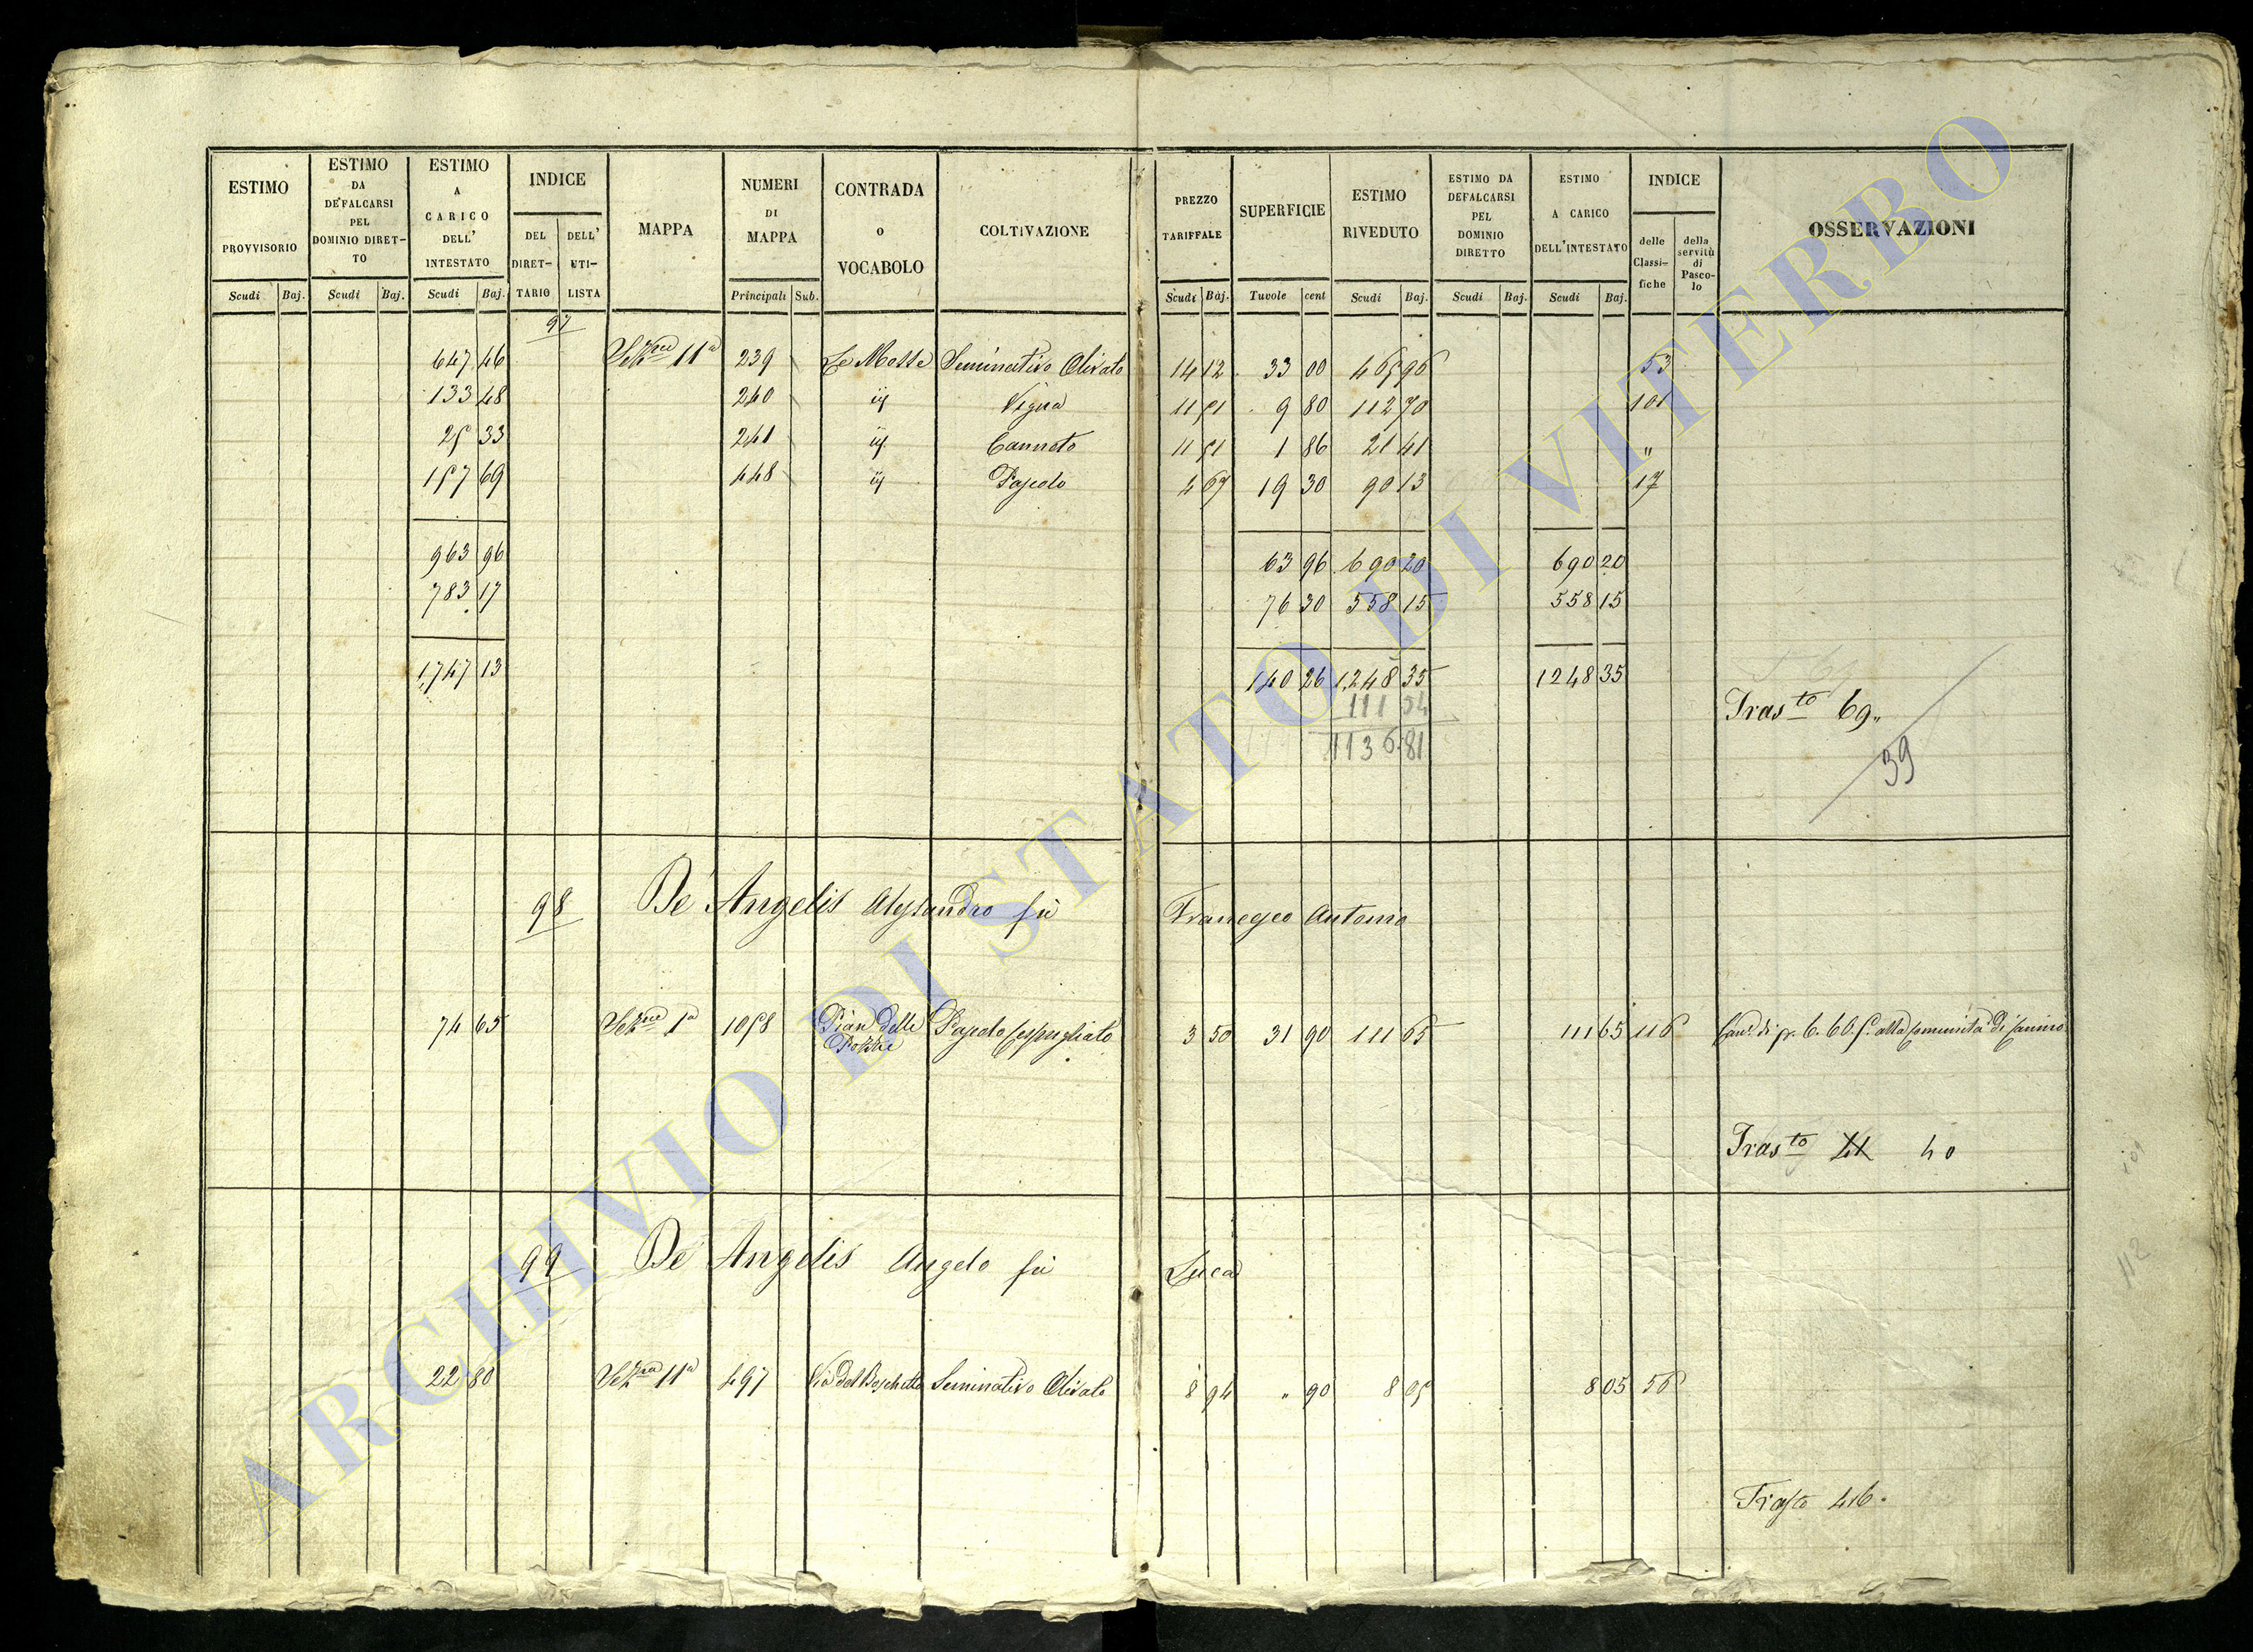 ESTIMO PROVVISORIO Scudi Baj.
ESTIMO DA DEFALCARSI PEL DOMINIO DIRET-TO Scudi Baj.
ESTIMO A CARICO DELL' INTESTATO Scudi Baj.
INDICE DEL DIRET-TARIO DELL' UTI-LISTA
MAPPA
NUMERI DI MAPPA Principali Sub.
CONTRADA o VOCABOLO
COLTIVAZIONE
PREZZO TARIFFALE Scudi Baj.
SUPERFICIE Tavole cent
ESTIMO RIVEDUTO Scudi Baj.
ESTIMO DA DEFALCARSI PEL DOMINIO DIRETTO Scudi Baj.
ESTIMO A CARICO DELL'INTESTATO Scudi Baj.
INDICE delle Classi-fiche della servitù di Pasco-lo
OSSERVAZIONI
97
647 46 Sezne 11a 239 Le Mosse Seminativo Olivato 14 12 33 00 465 96 53
133 48 240 iij Vigna 11 51 9 80 112 70 101
25 33 241 iij Canneto 11 51 1 86 21 41 "
157 69 448 iij Pascolo 4 67 19 30 90 13 17
963 96 63 96 690 20 690 20
783 17 76 30 558 15 558 15
1,747 13 140 26 1,248 35 1248 35
111 54
1136.81
Trasto 69"
39
98 De Angelis Alessandro fù Francesco Antonio
74 65 Sezne 1a 1058 Pian delle Pozze Pascolo Cespugliato 3 50 31 90 111 65 111 65 116 alla Comunità di Canino
Trasto 41 40
99 De Angelis Angelo fù Luca
22 80 Sezne 11a 497 Via del Boschetto Seminativo Olivato 8 94 " 90 8 05 8 05 56
Trasto 416.
112
ARCHIVIO DI STATO DI VITERBO